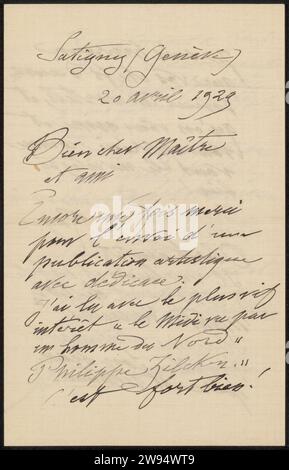 Satigny (Genève)
20 avril 1923
Bien cher Maître
et ami
Encore une fois merci
pour l'envoi d'une
publication artistique
avec dédicace.
J'ai lu avec le plus vif
intérêt « le Midi vu par
un homme du Nord »
Philippe Zilcken.
C'est fort bien!
alamy
Image ID: 2W94WT9
www.alamy.com